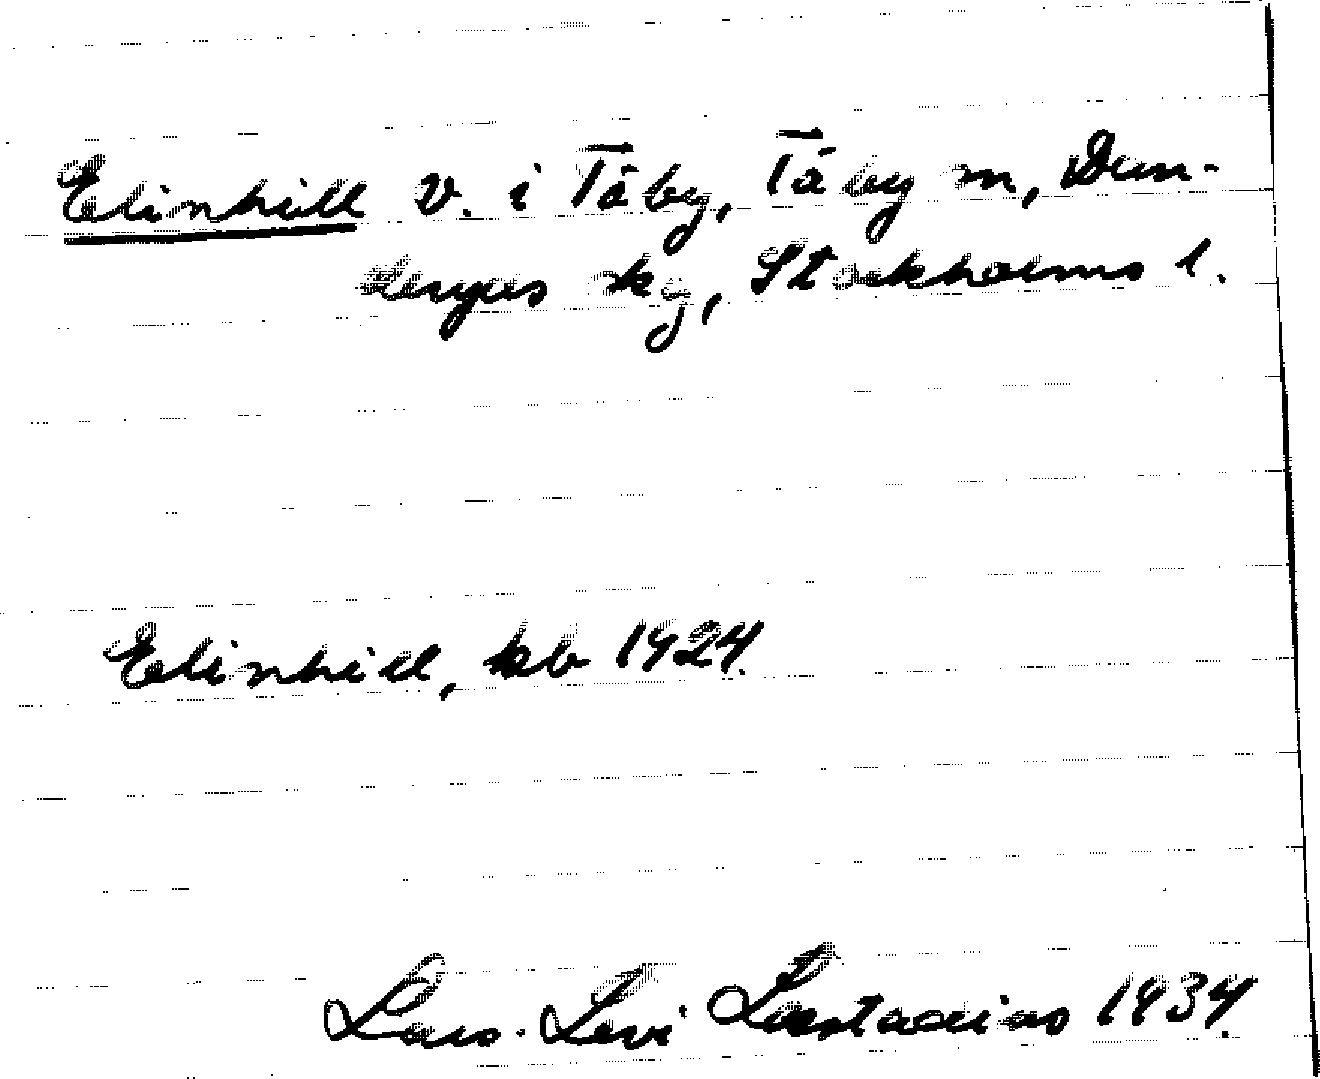 Elinhill V. i Täby, Täby sn, Dan-
deryds skg, Stockholms l.
Elinhill, kb 1924.
Lars-Levi Læstadius 1934.